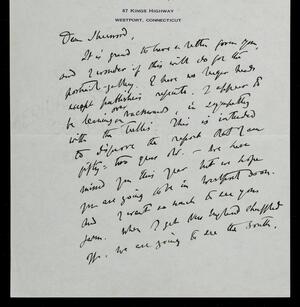 67 KINGS HIGHWAY
WESTPORT, CONNECTICUT
Dear Sherwood,
It is grand to have a letter from you,
and I wonder if this will do for the
portrait-gallery. I have no larger heads
except publishers reprints. I appear to
be leaning over backwards, in sympathy
with the trellis. This is intended
to disprove the report that I am
fifty-two years old. — We have
missed you this year but we hope
you are going to be in Westport soon.
And I want so much to see your
farm. When I get New England
off, we are going to see the South.